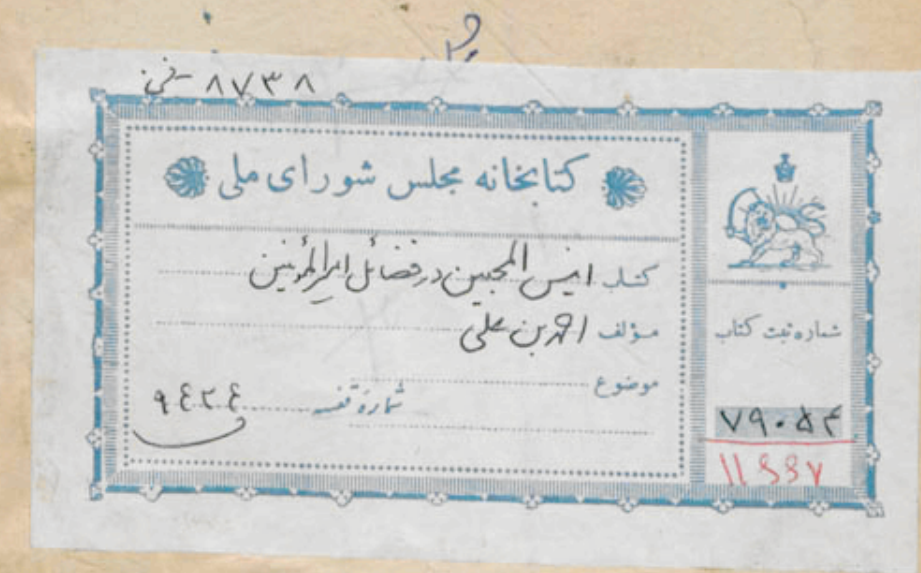 ۸۷۳۸ - فی
کتابخانه مجلس شورای ملی
کتاب انیس المحبین در فضائل امیرالمؤمنین
مؤلف احمد بن علی
موضوع
شماره قفسه ۹۴۲۴
شماره ثبت کتاب
۷۹۰۵۴
۱۱۶۶۷